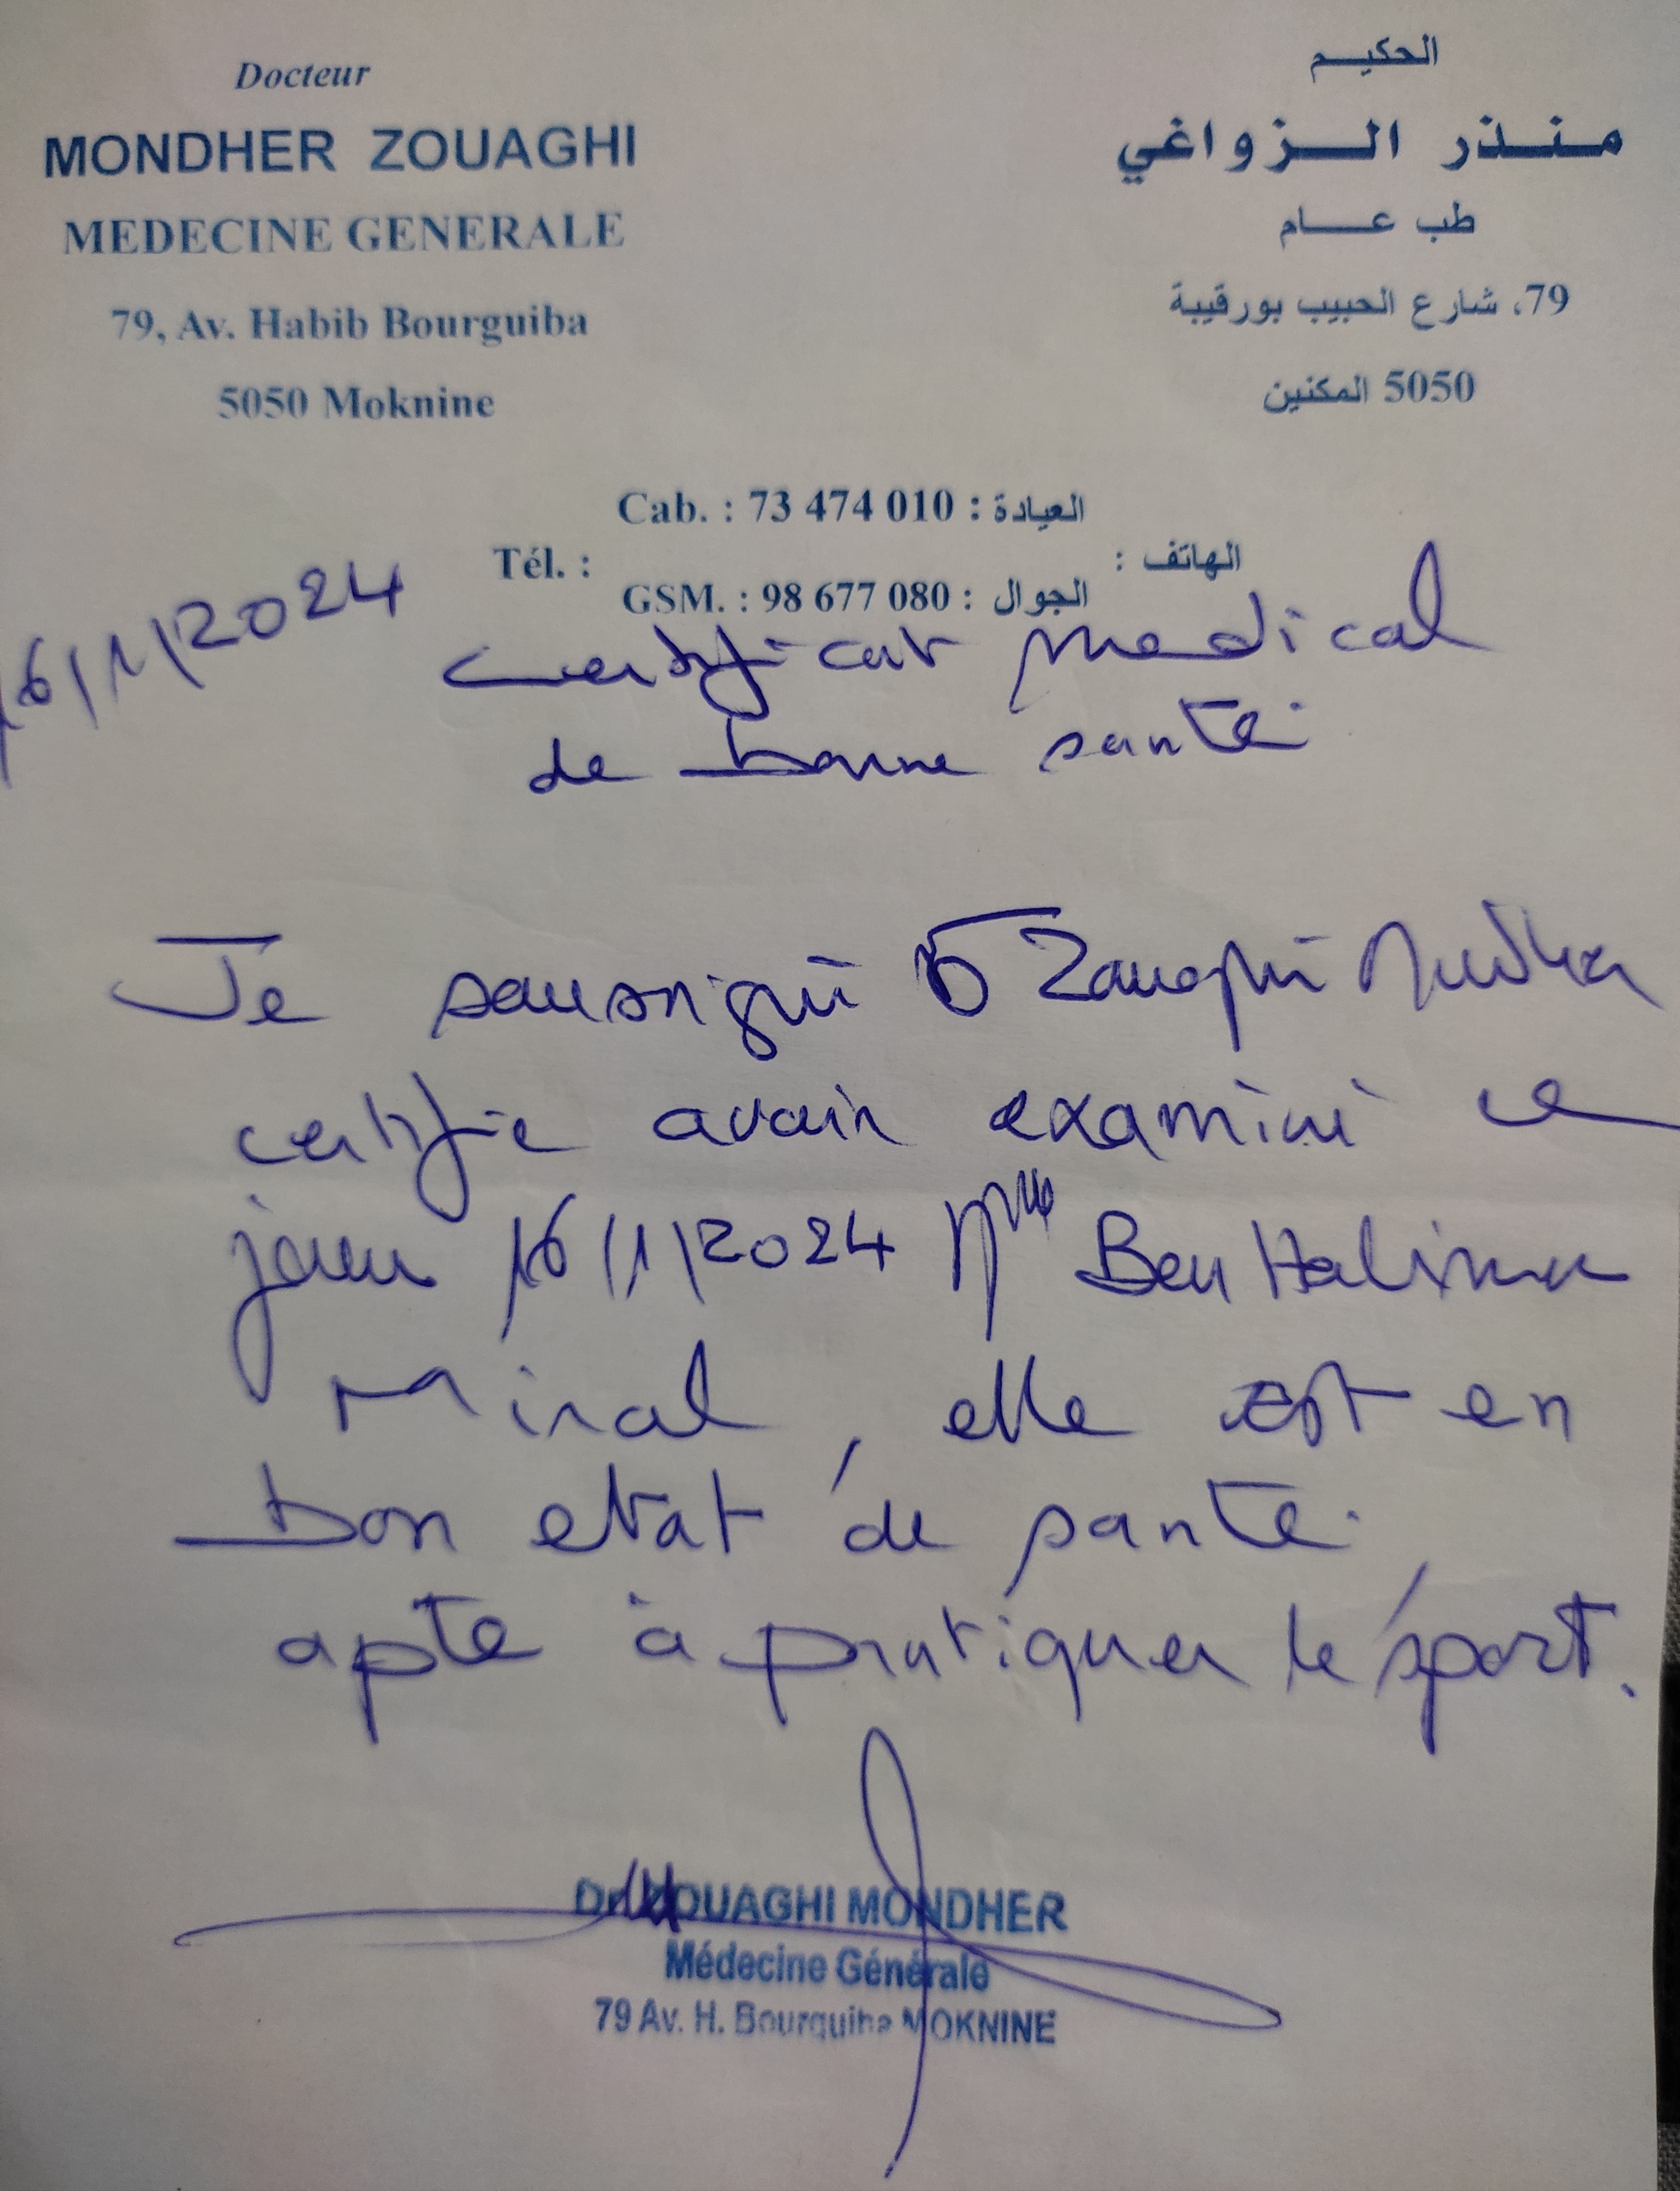 Docteur
MONDHER ZOUAGHI
MEDECINE GENERALE
79, Av. Habib Bourguiba
5050 Moknine
الحكيم
منذر الزواغي
طب عام
79، شارع الحبيب بورقيبة
5050 المكنين
Cab. : 73 474 010 : العيادة
Tél. : الهاتف :
GSM. : 98 677 080 : الجوال
16/1/2024
certificat medical
de bonne santé
Je soussigné Dr Zouaghi Mondher
certifie avoir examiné ce
jour 16/1/2024 Mme Ben Halima
Minal, elle est en
bon etat de santé.
apte à pratiquer le sport.
Dr. ZOUAGHI MONDHER
Médecine Générale
79 Av. H. Bourguiba MOKNINE